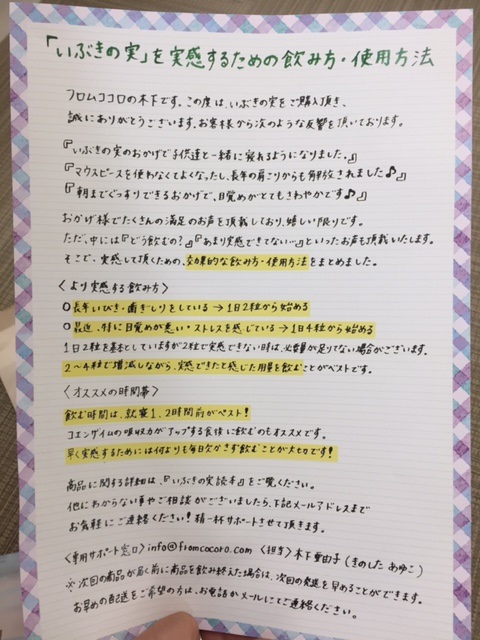 「いぶきの実」を実感するための飲み方・使用方法
フロムココロの木下です。この度は、いぶきの実をご購入頂き、
誠にありがとうございます。お客様から次のような反響を頂いております。
『いぶきの実のおかげで子供達と一緒に寝れるようになりました。』
『マウスピースを使わなくてよくなったし、長年の肩こりからも解放されました♪』
『朝までぐっすりできるおかげで、目覚めがとてもさわやかです♪』
おかげ様でたくさんの満足のお声を頂戴しており、嬉しい限りです。
ただ、中には『どう飲むの?』『あまり実感できてない…』といったお声も頂戴いたします。
そこで、実感して頂くための、効果的な飲み方・使用方法をまとめました。
〈より実感する飲み方〉
○長年いびき・歯ぎしりをしている→1日2粒から始める
○最近、特に目覚めが悪い・ストレスを感じている→1日4粒から始める
1日2粒を基本としていますが2粒で実感できない時は、必要量が足りてない場合がございます。
2〜4粒で増減しながら、実感できたと感じた用量を飲むことがベストです。
〈オススメの時間帯〉
飲む時間は、就寝1、2時間前がベスト!
コエンザイムの吸収力がアップする食後に飲むのもオススメです。
早く実感するためには何よりも毎日欠かさず飲むことが大切です!
商品に関する詳細は、『いぶきの実読本』をご覧ください。
他にわからない事やご相談がございましたら、下記メールアドレスまで
お気軽にご連絡ください!精一杯サポートさせて頂きます。
〈専用サポート窓口〉info@fromcocoro.com 〈担当〉木下亜由子(きのした あゆこ)
※次回の商品が届く前に商品を飲み終えた場合は、次回の発送を早めることができます。
お早めの配送をご希望の方は、お電話かメールにてご連絡ください。